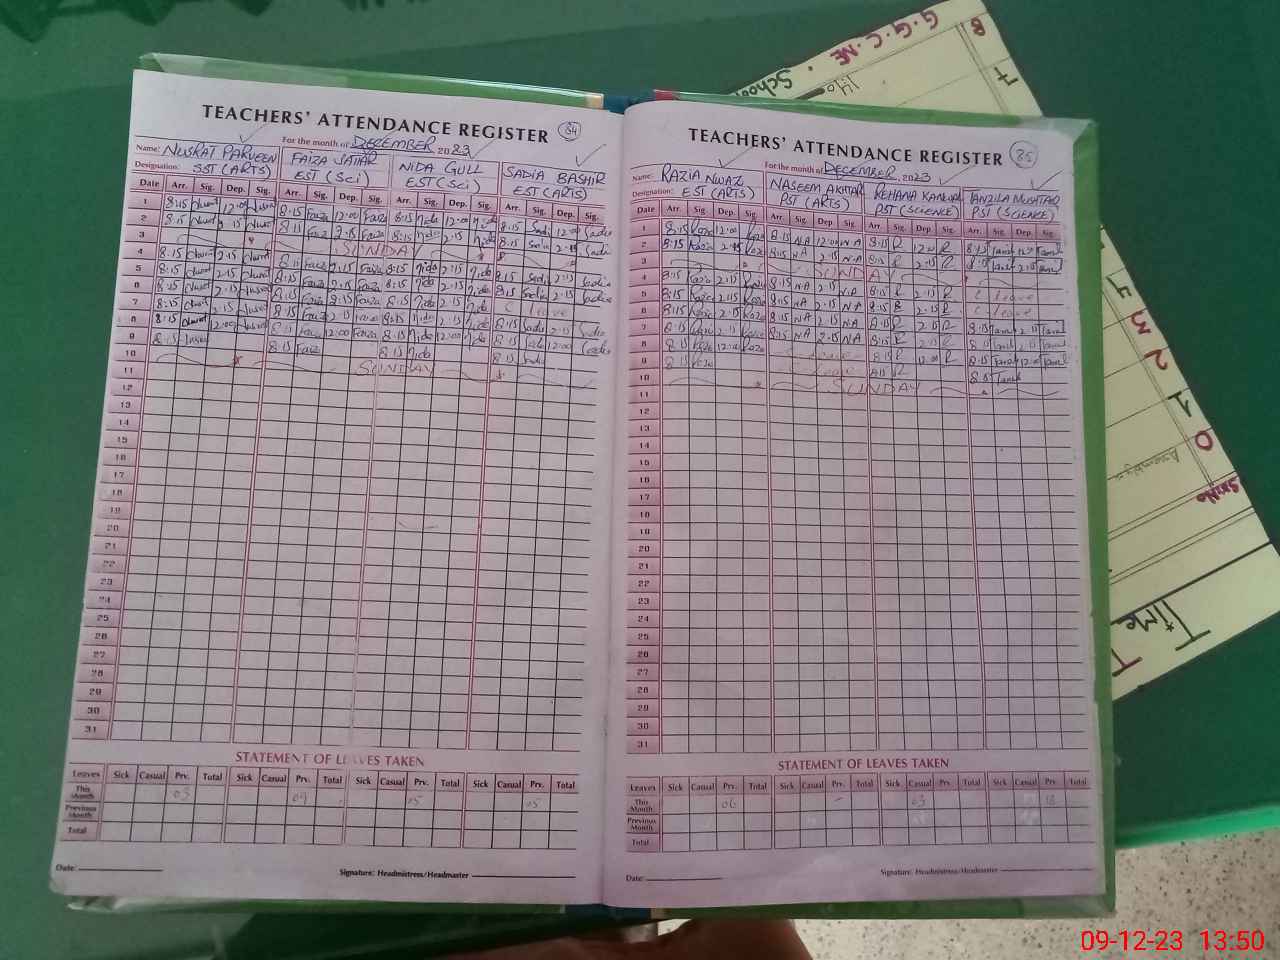 TEACHERS' ATTENDANCE REGISTER 84
For the month of DECEMBER 2023
Name: NUSRAT PARVEEN FAIZA SATTAR NIDA GULL SADIA BASHIR
Designation: SST (ARTS) EST (Sci) EST (Sci) EST (ARTS)
Date Arr. Sig. Dep. Sig. Arr. Sig. Dep. Sig. Arr. Sig. Dep. Sig. Arr. Sig. Dep. Sig.
1 8:15 12:00 8:15 Faiza 12:00 Faiza 8:15 Nida 12:00 Nida 8:15 Sadia 12:00 Sadia
2 8:15 2:15 8:15 Faiza 2:15 Faiza 8:15 Nida 2:15 Nida 8:15 Sadia 2:15 Sadia
3 SUNDAY
4 8:15 2:15 8:15 Faiza 2:15 Faiza 8:15 Nida 2:15 Nida 8:15 Sadia 2:15 Sadia
5 8:15 2:15 8:15 Faiza 2:15 Faiza 8:15 Nida 2:15 Nida 8:15 Sadia 2:15 Sadia
6 8:15 2:15 8:15 Faiza 2:15 Faiza 8:15 Nida 2:15 Nida C leave
7 8:15 2:15 8:15 Faiza 2:15 Faiza 8:15 Nida 2:15 Nida 8:15 Sadia 2:15 Sadia
8 8:15 12:00 8:15 Faiza 12:00 Faiza 8:15 Nida 12:00 Nida 8:15 Sadia 12:00 Sadia
9 8:15 8:15 Faiza 8:15 Nida 8:15 Sadia
10 SUNDAY
11
12
13
14
15
16
17
18
19
20
21
22
23
24
25
26
27
28
29
30
31
STATEMENT OF LEAVES TAKEN
Leaves Sick Casual Prv. Total Sick Casual Prv. Total Sick Casual Prv. Total Sick Casual Prv. Total
This Month 03 09 05 05
Previous Month
Total
Date:
Signature: Headmistress/Headmaster
TEACHERS' ATTENDANCE REGISTER 85
For the month of DECEMBER, 2023
Name: RAZIA NWAZ NASEEM AKHTAR REHANA KANWAL TANZILA MUSHTAQ
Designation: EST (ARTS) PST (ARTS) PST (SCIENCE) PST (SCIENCE)
Date Arr. Sig. Dep. Sig. Arr. Sig. Dep. Sig. Arr. Sig. Dep. Sig. Arr. Sig. Dep. Sig.
1 8:15 12:00 8:15 N.A 12:00 N.A 8:15 R 12:00 R 8:15
2 8:15 2:15 8:15 N.A 2:15 N.A 8:15 R 2:15 R 8:15 2:15
3 SUNDAY
4 8:15 2:15 8:15 N.A 2:15 N.A 8:15 R 2:15 R C leave
5 8:15 2:15 8:15 N.A 2:15 N.A 8:15 R 2:15 R C leave
6 8:15 2:15 8:15 N.A 2:15 N.A 8:15 R 2:15 R 8:15 2:15
7 8:15 2:15 8:15 N.A 2:15 N.A 8:15 R 2:15 R 8:15 2:15
8 8:15 12:00 leave 8:15 R 12:00 R 8:15 12:00
9 8:15 leave 8:15 R 8:15
10 SUNDAY
11
12
13
14
15
16
17
18
19
20
21
22
23
24
25
26
27
28
29
30
31
STATEMENT OF LEAVES TAKEN
Leaves Sick Casual Prv. Total Sick Casual Prv. Total Sick Casual Prv. Total Sick Casual Prv. Total
This Month 06 - 03 13
Previous Month
Total
Date:
Signature: Headmistress/Headmaster
G.G.C.ME. School
8
7
4
3
2
1
0
Assembly
Sr.No
Time
T
09-12-23 13:50